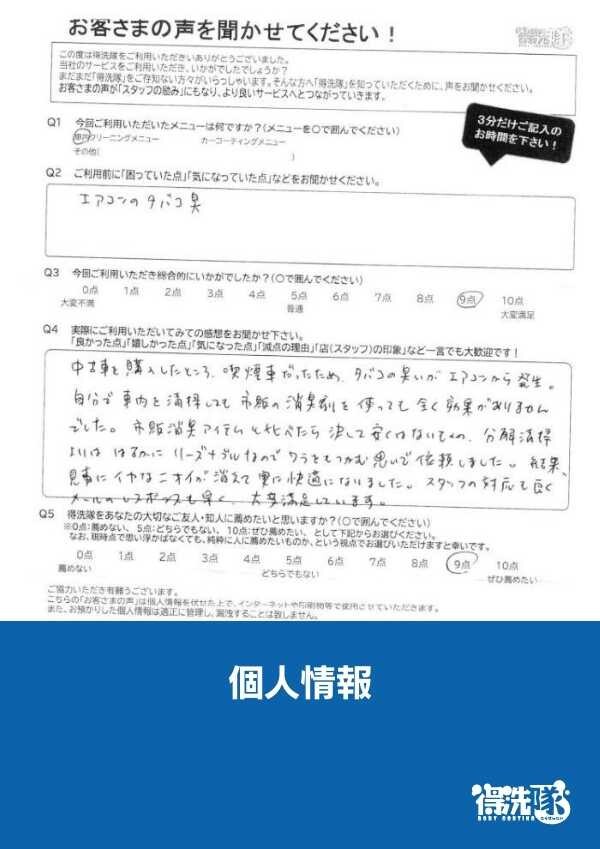 お客さまの声を聞かせてください！
得洗隊
この度は得洗隊をご利用いただきありがとうございました。
当社のサービスをご利用いただき、いかがでしたでしょうか？
まだまだ「得洗隊」をご存知ない方々がいらっしゃいます。そんな方へ「得洗隊」を知っていただくために、声をお聞かせください。
お客さまの声が「スタッフの励み」にもなり、より良いサービスへとつながっていきます。
3分だけご記入の
お時間を下さい！
Q1 今回ご利用いただいたメニューは何ですか？（メニューを○で囲んでください）
車内クリーニングメニュー カーコーティングメニュー
その他（ ）
Q2 ご利用前に「困っていた点」「気になっていた点」などをお聞かせください。
エアコンのタバコ臭
Q3 今回ご利用いただき総合的にいかがでしたか？（○で囲んでください）
0点 1点 2点 3点 4点 5点 6点 7点 8点 9点 10点
大変不満 普通 大変満足
Q4 実際にご利用いただいてみての感想をお聞かせ下さい。
「良かった点」「嬉しかった点」「気になった点」「減点の理由」「店（スタッフ）の印象」など一言でも大歓迎です！
中古車を購入したところ、喫煙車だったため、タバコの臭いがエアコンから発生。
自分で車内を清掃しても市販の消臭剤を使っても全く効果がありません
でした。市販消臭アイテムと比べたら決して安くはないものの、分解清掃
よりははるかにリーズナブルなのでワラをもつかむ思いで依頼しました。結果、
見事にイヤなニオイが消えて車に快適になりました。スタッフの対応も良く
メールのレスポンスも早く、大変満足しています。
Q5 得洗隊をあなたの大切なご友人・知人に薦めたいと思いますか？（○で囲んでください）
※0点：薦めない、5点：どちらでもない、10点：ぜひ薦めたい、として下記からお選びください。
なお、現時点で思い浮かばなくても、純粋に人に薦めたいものか、という視点でお選びいただけますと幸いです。
0点 1点 2点 3点 4点 5点 6点 7点 8点 9点 10点
薦めない どちらでもない ぜひ薦めたい
ご協力いただき有難うございます。
こちらの「お客さまの声」は個人情報を伏せた上で、インターネットや印刷物等で使用させていただきます。
また、お預かりした個人情報は適正に管理し、漏洩することは致しません。
個人情報
得洗隊
BODY COATING